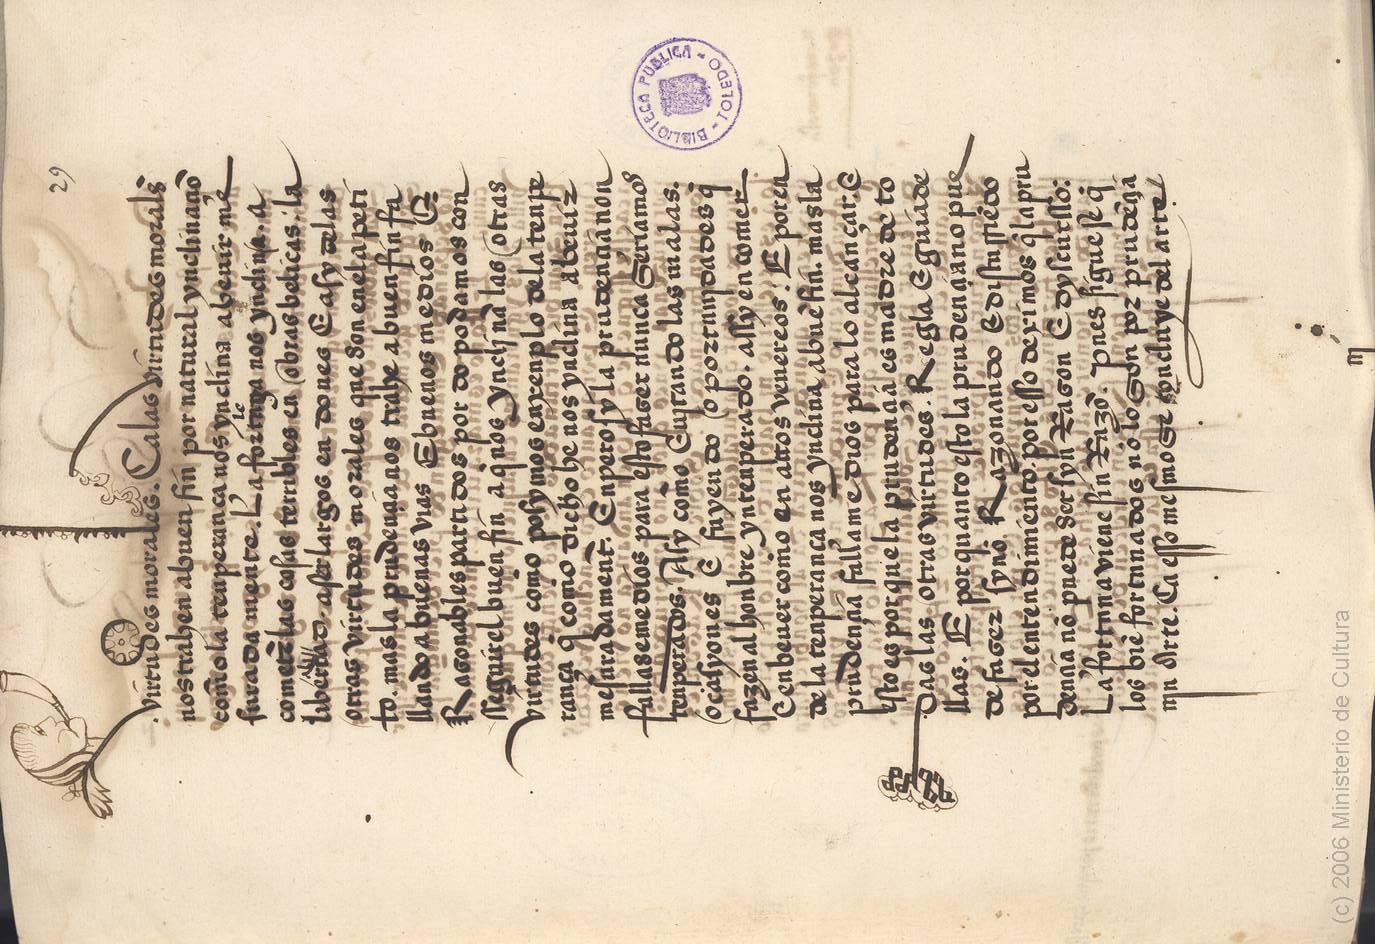 29
virtudes morales. Ca las virtudes morales
nos trahen a buen fin por natural ynclinaçiō
como la tenperança nos ynclina a beuir me
surada mente. La fortaleza nos ynclina. a
cometer las cosas terribles en obras belicas. la
libertad. a ser largos en dones E asy de las
otras virtudes morales que son en el apeti
to. mas la prudençia nos trahe a buen fin fa
llando a buenas vias E buenos medios E
Razonables partidos por do podamos con
seguir el buen fin a que nos ynclinā las otras
virtudes como posymos enxenplo de la tenpe
rança q̄ como dicho he nos ynclina a beuir
mesuradament. Enpero sy la prudençia non
fallase medios para esto fazer nunca seriamos
tenperados. Asy como Euytando las malas.
ocasyones E fuyendo oportunidades q̄
fazen al honbre yntenperado. asy en comer
E en beuer como en actos venereos. E por en
de la tenperança nos ynclina a buē fin. mas la
prudençia falla medios para lo alcançar. E
esto es por que la prudençia es madre de to
das las otras virtudes. Regla E guia de
llas. E por quanto esto la prudençia no pue
de fazer syno Razonando E discurriēdo
por el entendimiento por esso deximos q̄ la pru
dençia no puede ser syn Razon E dyscursso:
La fortuna viene sin Razō. Pues siguese q̄
los biē fortunados no lo son por prudēçia
nin Arte. Ca esso mesmo se concluye del arte.
BIBLIOTECA PUBLICA - TOLEDO -
(c) 2006 Ministerio de Cultura